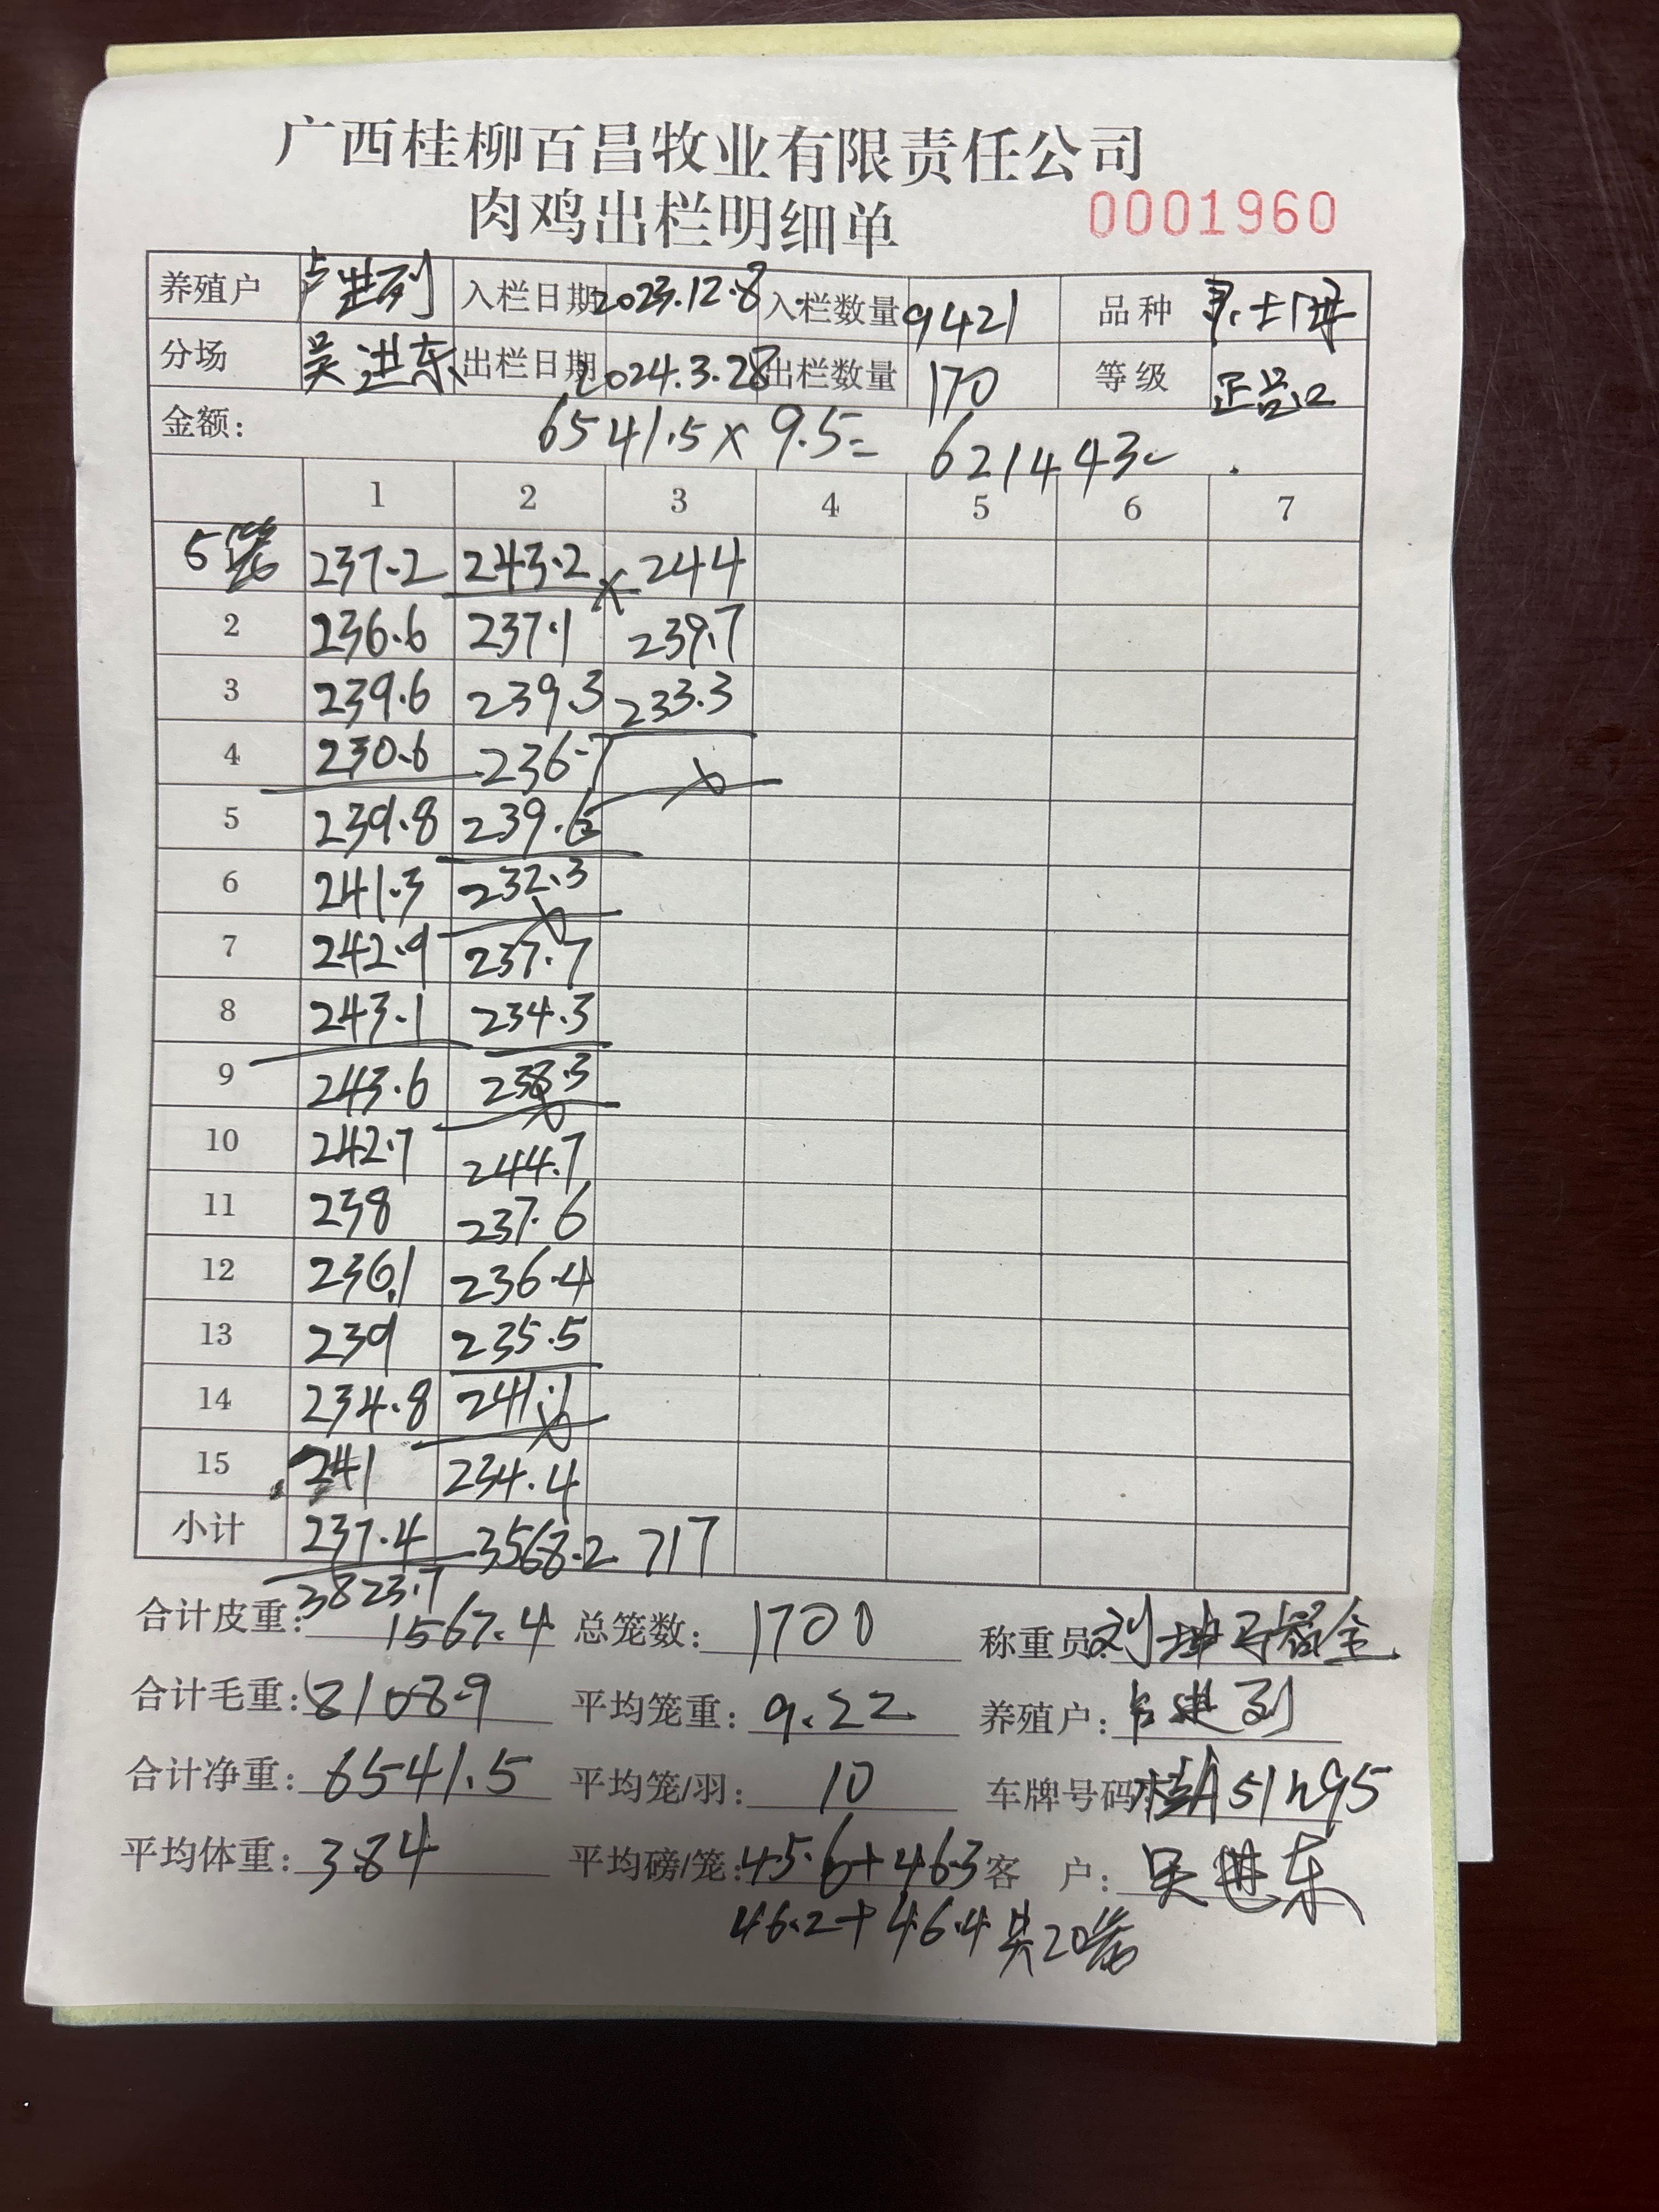 广西桂柳百昌牧业有限责任公司
肉鸡出栏明细单 0001960
养殖户 卢进列 入栏日期 2023.12.8 入栏数量 9421 品种
分场 吴进东 出栏日期 2024.3.28 出栏数量 170 等级 正品
金额: 6541.5×9.5= 62144
1 2 3 4 5 6 7
5 237.2 243.2 × 244
2 236.6 237.1 239.7
3 239.6 239.3 233.3
4 230.6 236.7
5 239.8 239.6
6 241.3 232.3
7 242.9 237.7
8 243.1 234.3
9 243.6 238.3
10 242.7 244.7
11 238 237.6
12 236.1 236.4
13 239 235.5
14 234.8 241.1
15 241 234.4
小计 237.4 3568.2 717
3823.7
合计皮重: 1567.4 总笼数: 1700 称重员:
合计毛重: 8108.9 平均笼重: 9.22 养殖户: 卢进列
合计净重: 6541.5 平均笼/羽: 10 车牌号码: 桂A51
平均体重: 3.84 平均磅/笼: 45.6+46.3 客 户: 吴进东
46.2+46.4 共20